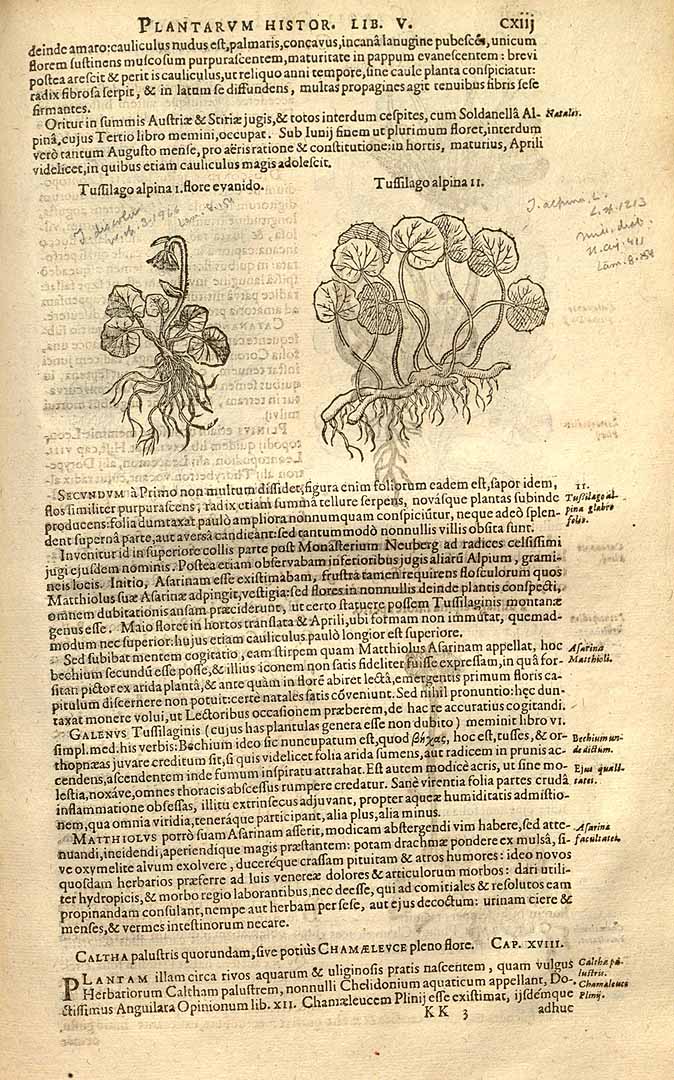 PLANTARVM HISTOR. LIB. V. cxiij
deinde amaro: cauliculus nudus est, palmaris, conçavus, incanâ lanugine pubescẽs, unicum
florem sustinens muscosum purpurascentem, maturitate in pappum evanescentem: brevi
postea arescit & perit is cauliculus, ut reliquo anni tempore, sine caule planta conspiciatur:
radix fibrosa serpit, & in latum se diffundens, multas propagines agit tenuibus fibris sese
firmantes.
Oritur in summis Austriæ & Stiriæ jugis, & totos interdum cespites, cum Soldanellâ Al-
pinâ, cujus Tertio libro memini, occupat. Sub Iunij finem ut plurimum floret, interdum
verò tantum Augusto mense, pro aëris ratione & constitutione: in hortis, maturius, Aprili
videlicet, in quibus etiam cauliculus magis adolescit.
Natales.
Tussilago alpina I. flore evanido. Tussilago alpina II.
T. discolor
T. alpina. L.
L. sp. 1213
Lam. 8. 354
SECVNDVM à Primo non multum dissidet, figura enim foliorum eadem est, sapor idem,
flos similiter purpurascens, radix etiam summâ tellure serpens, novásque plantas subinde
producens: folia dumtaxat paulò ampliora nonnumquam conspiciũtur, neque adeò splen-
dent supernâ parte, aut aversâ candicant: sed tantummodò nonnullis villis obsita sunt.
II.
Tussilago al-
pina glabro
folio.
Invenitur id in superiore collis parte post Monasterium Neuberg ad radices celsissimi
jugi ejusdem nominis. Postea etiam observabam inferioribus jugis aliarũ Alpium, grami-
neis locis. Initio, Asarinam esse existimabam, frustrà tamen requirens flosculorum quos
Matthiolus suæ Asarinæ adpingit, vestigia: sed flores in nonnullis deinde plantis conspecti,
omnem dubitationis ansam præciderunt, ut certo statuere possem Tussilaginis montanæ
genus esse. Maio floret in hortos translata & Aprili, ubi formam non immutat, quemad-
modum nec superior: hujus etiam cauliculus paulò longior est superiore.
Sed subibat mentem cogitatio, eam stirpem quam Matthiolus Asarinam appellat, hoc
bechium secundũ esse posse, & illius iconem non satis fideliter fuisse expressam, in quâ for-
sitan pictor ex arida plantâ, & ante quàm in florẽ abiret lectâ, emergentis primum floris ca-
pitulum discernere non potuit: certe natales satis cõveniunt. Sed nihil pronuntio: hęc dun-
taxat monere volui, ut Lectoribus occasionem præberem, de hac re accuratius cogitandi.
Asarina
Matthioli.
GALENVS Tussilaginis (cujus has plantulas genera esse non dubito) meminit libro VI.
simpl. med. his verbis: Bechium ideo sic nuncupatum est, quod βῆχας, hoc est, tusses, & or-
thopnæas juvare creditum sit, si quis videlicet folia arida sumens, aut radicem in prunis ac-
cendens, ascendentem inde fumum inspiratu attrahat. Est autem modicè acris, ut sine mo-
lestia, noxáve, omnes thoracis abscessus rumpere credatur. Sanè virentia folia partes crudâ
inflammatione obsessas, illitu extrinsecus adjuvant, propter aqueæ humiditatis admistio-
nem, qua omnia viridia, teneráque participant, alia plus, alia minus.
Bechium un-
de dictum.
Ejus quali-
tates.
MATTHIOLVS porrò suam Asarinam asserit, modicam abstergendi vim habere, sed atte-
nuandi, incidendi, aperiendique magis præstantem: potam drachmæ pondere ex mulsâ, si-
ve oxymelite alvum exolvere, duceréque crassam pituitam & atros humores: ideo novos
quosdam herbarios præferre ad luis venereæ dolores & articulorum morbos: dari utili-
ter hydropicis, & morbo regio laborantibus, nec deesse, qui ad comitiales & resolutos eam
propinandam consulant, nempe aut herbam per sese, aut ejus decoctum: urinam ciere &
menses, & vermes intestinorum necare.
Asarinæ
facultates.
CALTHA palustris quorundam, sive potiùs CHAMÆLEVCE pleno flore. CAP. XVIII.
PLANTAM illam circa rivos aquarum & uliginosis pratis nascentem, quam vulgus
Herbariorum Caltham palustrem, nonnulli Chelidonium aquaticum appellant, Do-
ctissimus Anguilara Opinionum lib. XII. Chamæleucem Plinij esse existimat, ijsdémque
Caltha pa-
lustris.
Chamaleuce
Plinij.
KK 3 adhuc